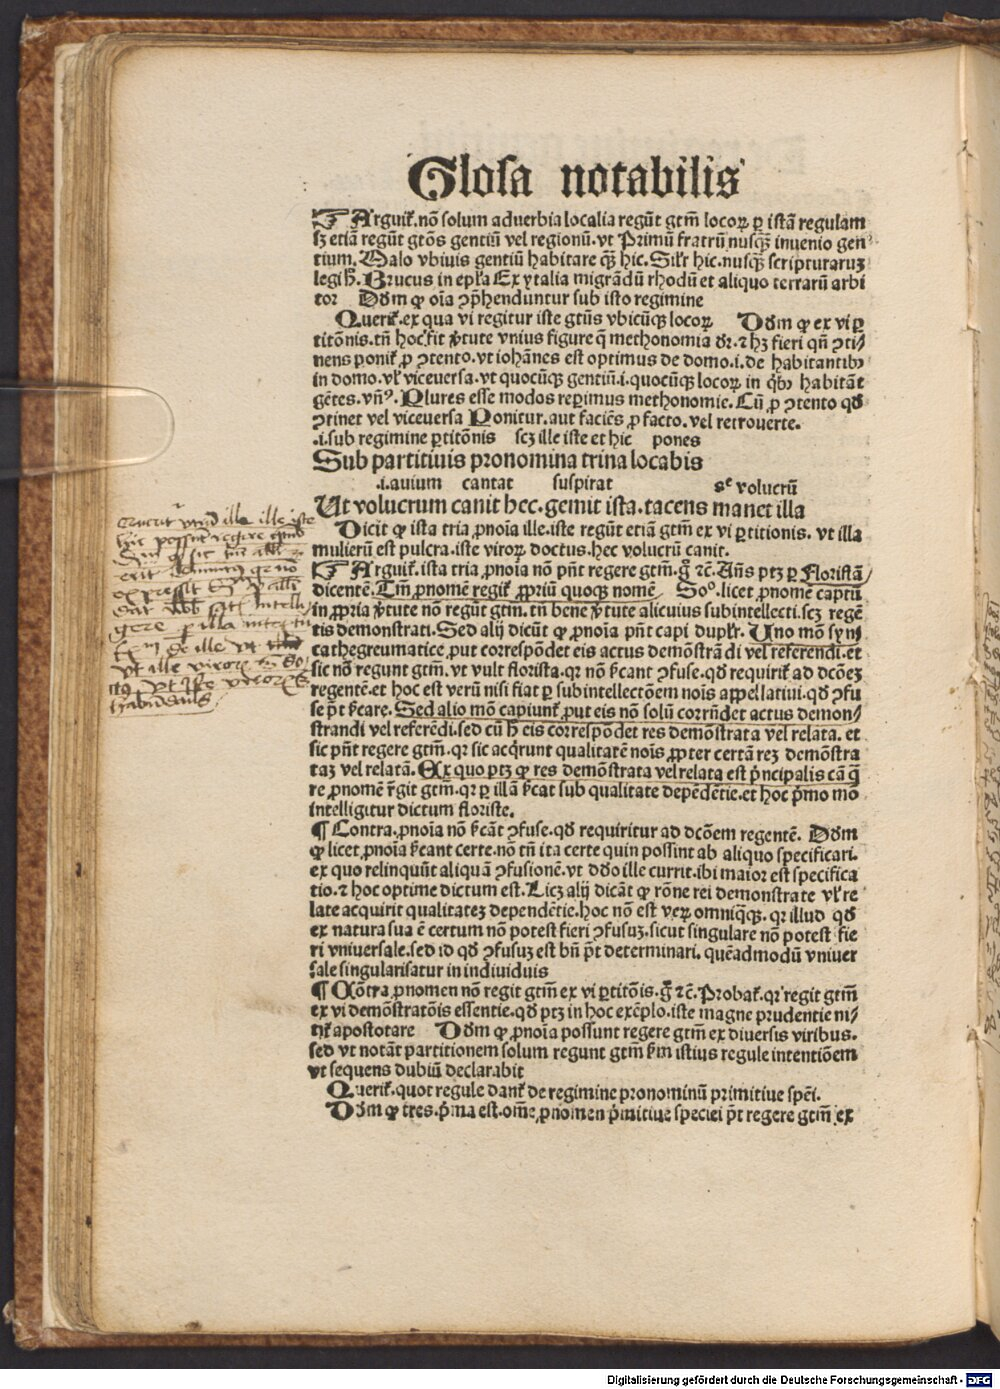 Glosa notabilis
¶ Arguit̃.nō solum aduerbia localia regūt gtm̄ locoꝝ ꝑ istā regulam
sꝫ etiā regūt gtōs gentiū vel regionū.vt Primū fratrū nusꝗ̄ inuenio gen
tium. Malo vbiuis gentiū habitare ꝗ̄ hic. Silr̄ hic.nusꝗ̄ scripturaruꝫ
legi h̄. Brucus in epl̄a Ex ytalia migrādū rhodū et aliquo terrarū arbi
tor Dōm ꝙ oīa ꝯp̄henduntur sub isto regimine
Querit̃.ex qua vi regitur iste gtūs vbicūqꝫ locoꝝ Dōm ꝙ ex vi ꝑ
titōnis.tn̄ hoc fit v̄tute vnius figure q̄ methonomia dr̄.ꝛ hꝫ fieri qn̄ ꝯti
nens ponit̃ ꝓ ꝯtento.vt iohānes est optimus de domo.i.de habitantibꝫ
in domo.vl̄ viceuersa.vt quocūqꝫ gentiū.i.quocūqꝫ locoꝝ in q̄bꝫ habitāt
gētes.vn̄ꝰ. Plures esse modos reperimus methonomie. Cū ꝓ ꝯtento qd̄
ꝯtinet vel viceuersa Ponitur.aut faciēs ꝓ facto.vel retrouerte.
.i.sub regimine ꝑtitōnis scꝫ ille iste et hic pones
Sub partitiuis pronomina trina locabis
.i.auium cantat suspirat se volucrū
Ut volucrum canit hec.gemit ista.tacens manet illa
Dicit ꝙ ista tria ꝓnoīa ille.iste regūt etiā gtm̄ ex vi ꝑtitionis. vt illa
mulierū est pulcra.iste viroꝝ doctus.hec volucrū canit.
¶ Arguit̃.ista tria ꝓnoīa nō pn̄t regere gtm̄.g̊ ꝛc̄. Ans̄ ptꝫ ꝑ Floristā
dicentē. Tm̄ ꝓnomē regit̃ ꝓpriū quoqꝫ nomē Soº.licet ꝓnomē captū
in ꝓpria v̄tute nō regūt gtm̄.tn̄ bene v̄tute alicuius subintellecti.scꝫ regē
tis demonstrati. Sed alij dicūt ꝙ ꝓnoīa pn̄t capi duplr̄. Uno mō syn
cathegreumatice ꝓut correspōdet eis actus demōstrādi vel referendi.et
sic nō regunt gtm̄.vt vult florista.qꝛ nō s̄cant ꝯfuse.qd̄ requirit̃ ad dcōeꝫ
regentē.et hoc est verū nisi fiat ꝑ subintellectōem nois appellatiui.qd̄ ꝯfu
se p̄t s̄care. Sed alio mō capiunt̃ ꝓut eis nō solū corrn̄det actus demon
strandi vel referēdi.sed cū h̄ eis correspōdet res demōstrata vel relata. et
sic pn̄t regere gtm̄.qꝛ sic acq̄runt qualitatē nois ꝓpter certā reꝫ demōstra
taꝫ vel relatā. Ex quo ptꝫ ꝙ res demōstrata vel relata est p̄ncipalis cā q̄
re ꝓnomē r̄git gtm̄.qꝛ ꝑ illā s̄cat sub qualitate depēdētie.et hoc p̄mo mō
intelligitur dictum floriste.
¶ Contra.ꝓnoīa nō s̄cāt ꝯfuse.qd̄ requiritur ad dcōem regentē. Dōm
ꝙ licet ꝓnoīa s̄cant certe.nō tn̄ ita certe quin possint ab aliquo specificari.
ex quo relinquūt aliquā ꝯfusionē.vt dōo ille currit.ibi maior est specifica
tio.ꝛ hoc optime dictum est. Licꝫ alij dicāt ꝙ rōne rei demonstrate vl̄ re
late acquirit qualitateꝫ dependētie.hoc nō est veꝝ omniqꝗ̄. qꝛ illud qd̄
ex natura sua ē certum nō potest fieri ꝯfusuꝫ.sicut singulare nō potest fie
ri vniuersale.sed id qd̄ ꝯfusuꝫ est bn̄ p̄t determinari. quēadmodū vniuer
sale singularisatur in indiuiduis
¶ Cōtra ꝓnomen nō regit gtm̄ ex vi ꝑtitōis.g̊ ꝛc̄. Probat̃.qꝛ regit gtm̄
ex vi demōstratōis essentie.qd̄ ptꝫ in hoc exēplo.iste magne prudentie ni
tit̃ apostotare Dōm ꝙ ꝓnoīa possunt regere gtm̄ ex diuersis viribus.
sed vt notāt partitionem solum regunt gtm̄ s̄m istius regule intentiōem
vt sequens dubiū declarabit
Querit̃.quot regule dant̃ de regimine pronominū primitiue spēi.
Dōm ꝙ tres.p̄ma est.om̄e ꝓnomen p̄mitiue speciei p̄t regere gtm̄ ex
Digitalisierung gefördert durch die Deutsche Forschungsgemeinschaft - DFG